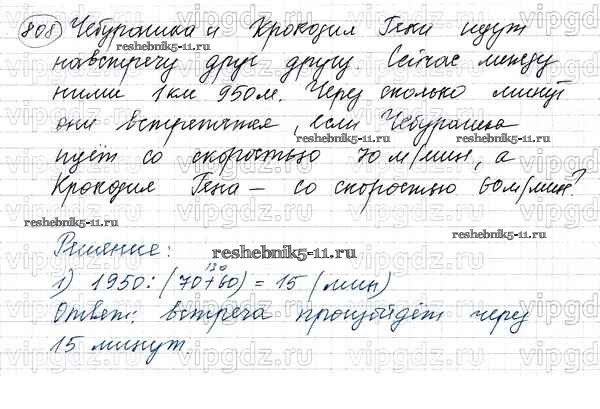 808) Чебурашка и Крокодил Гена идут
навстречу друг другу. Сейчас между
ними 1 км 950 м. Через сколько минут
они встретятся, если Чебурашка
идёт со скоростью 70 м/мин, а
Крокодил Гена – со скоростью 60 м/мин?
Решение:
130
1) 1950 : (70+60) = 15 (мин)
Ответ: встреча произойдёт через
15 минут.
reshebnik5-11.ru
reshebnik5-11.ru
reshebnik5-11.ru
reshebnik5-11.ru
reshebnik5-11.ru
vipgdz.ru